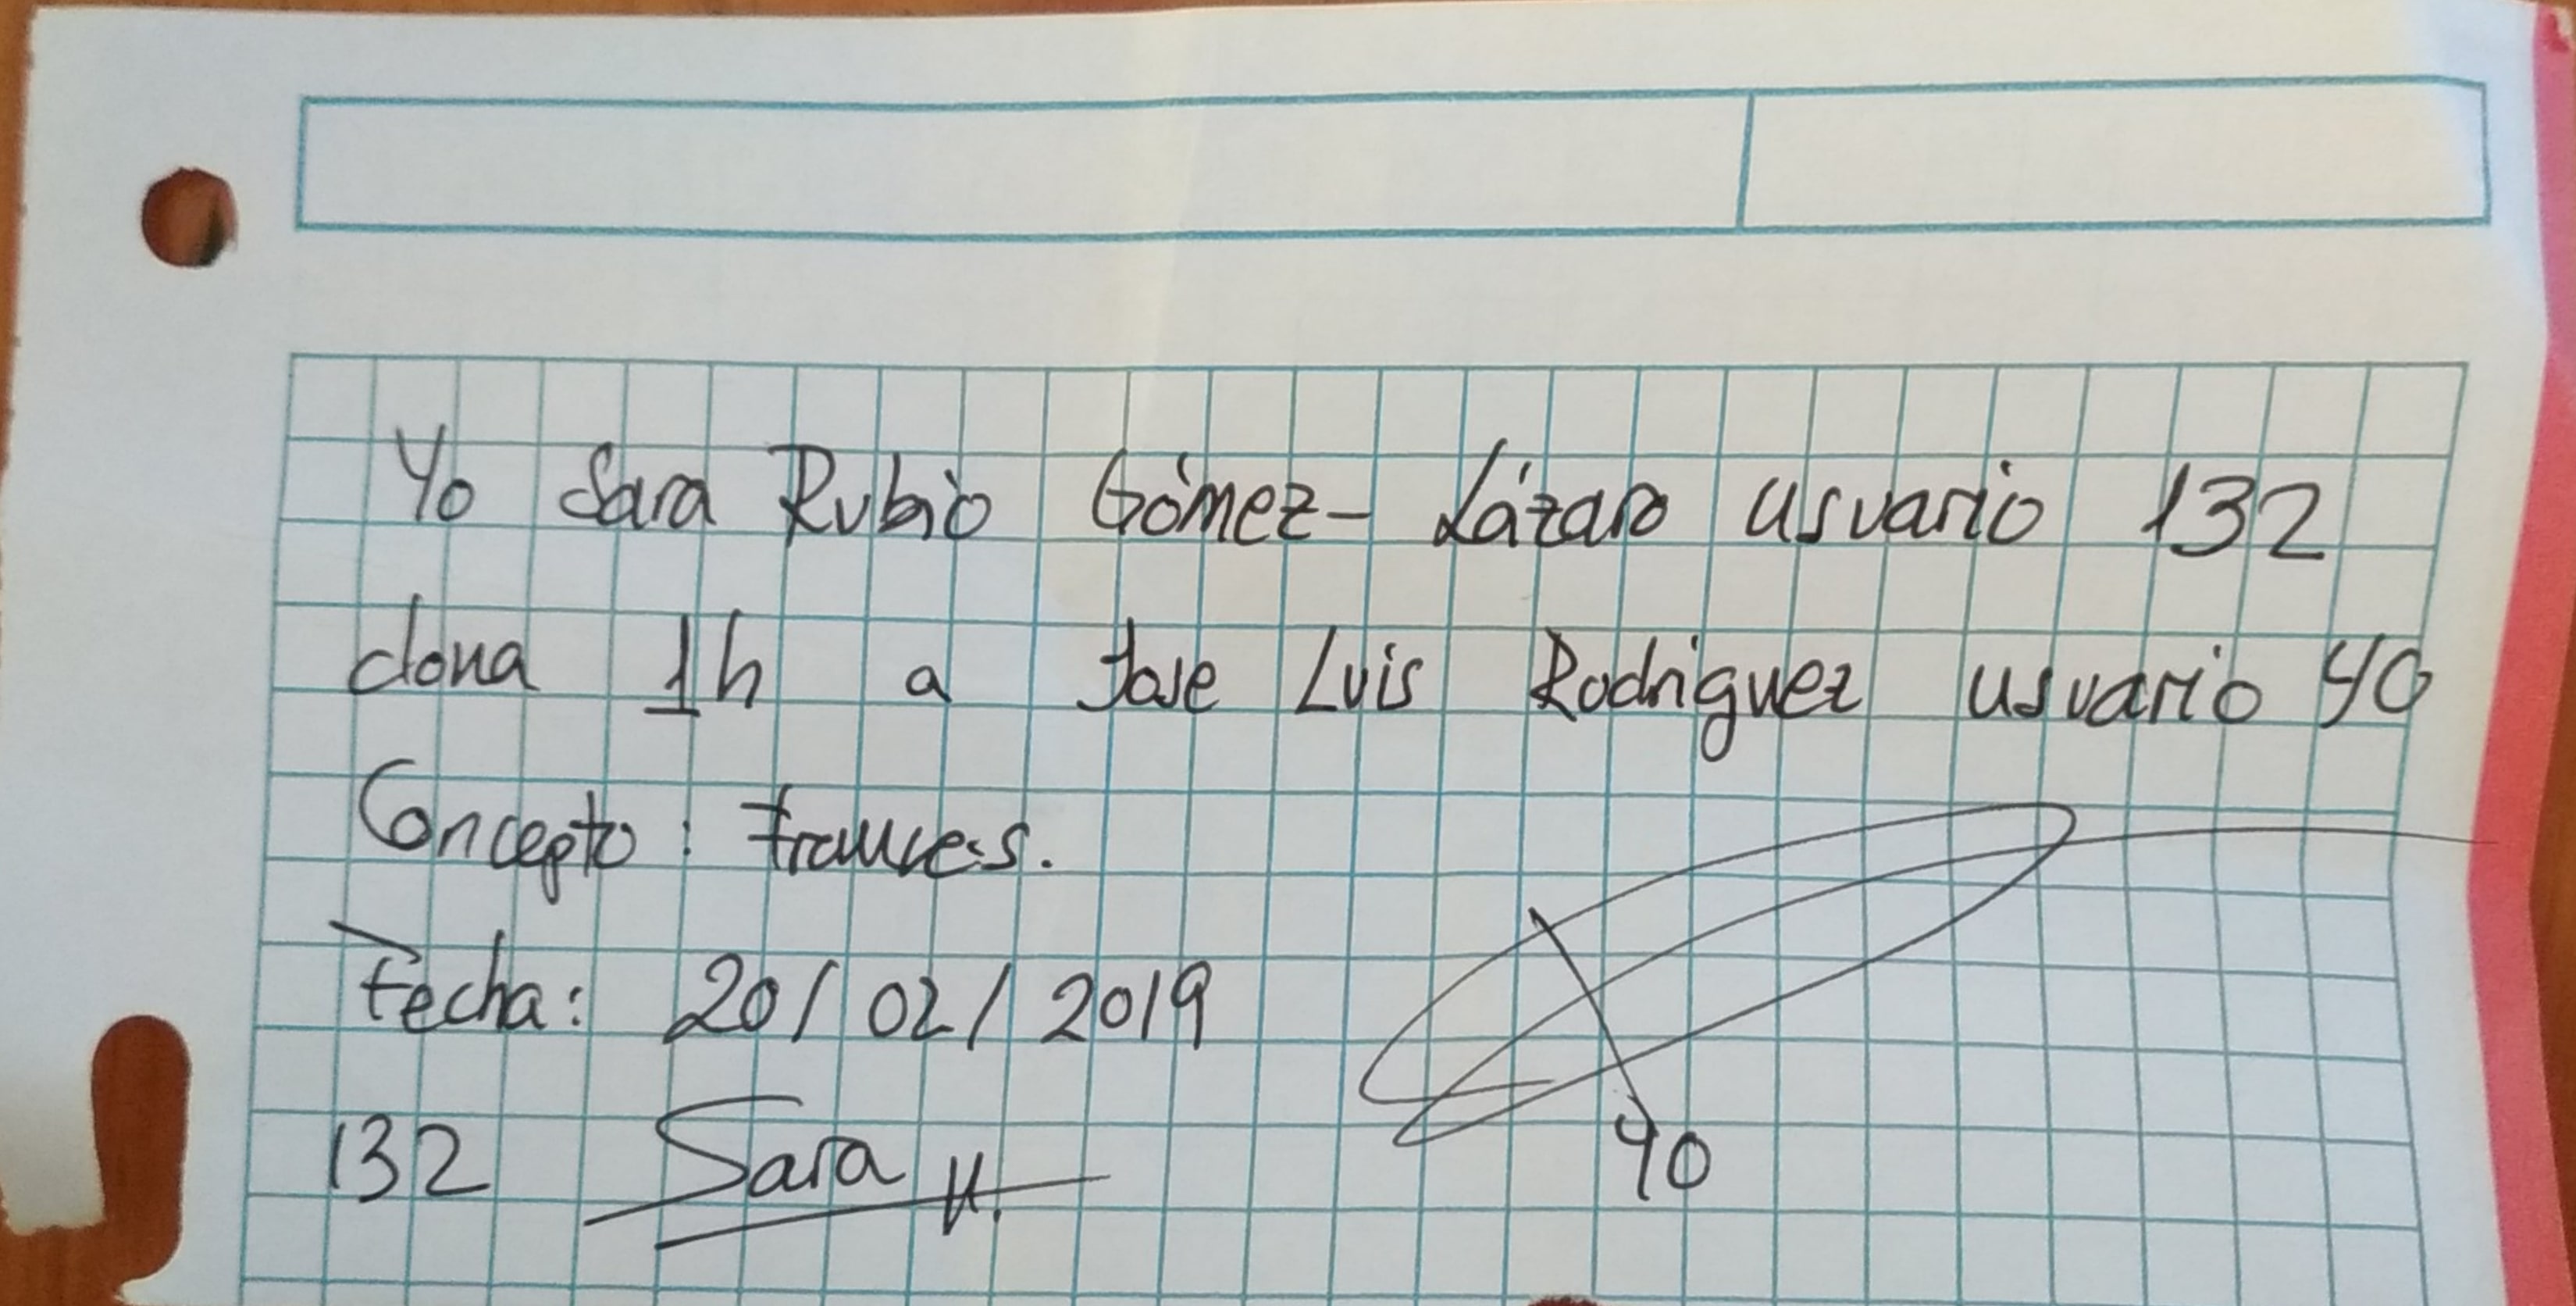 Yo Sara Rubio Gómez- Lázaro usuario 132
dona 1h a Jose Luis Rodriguez usuario 40
Concepto: frances.
Fecha: 20/02/2019
132 Sara 40